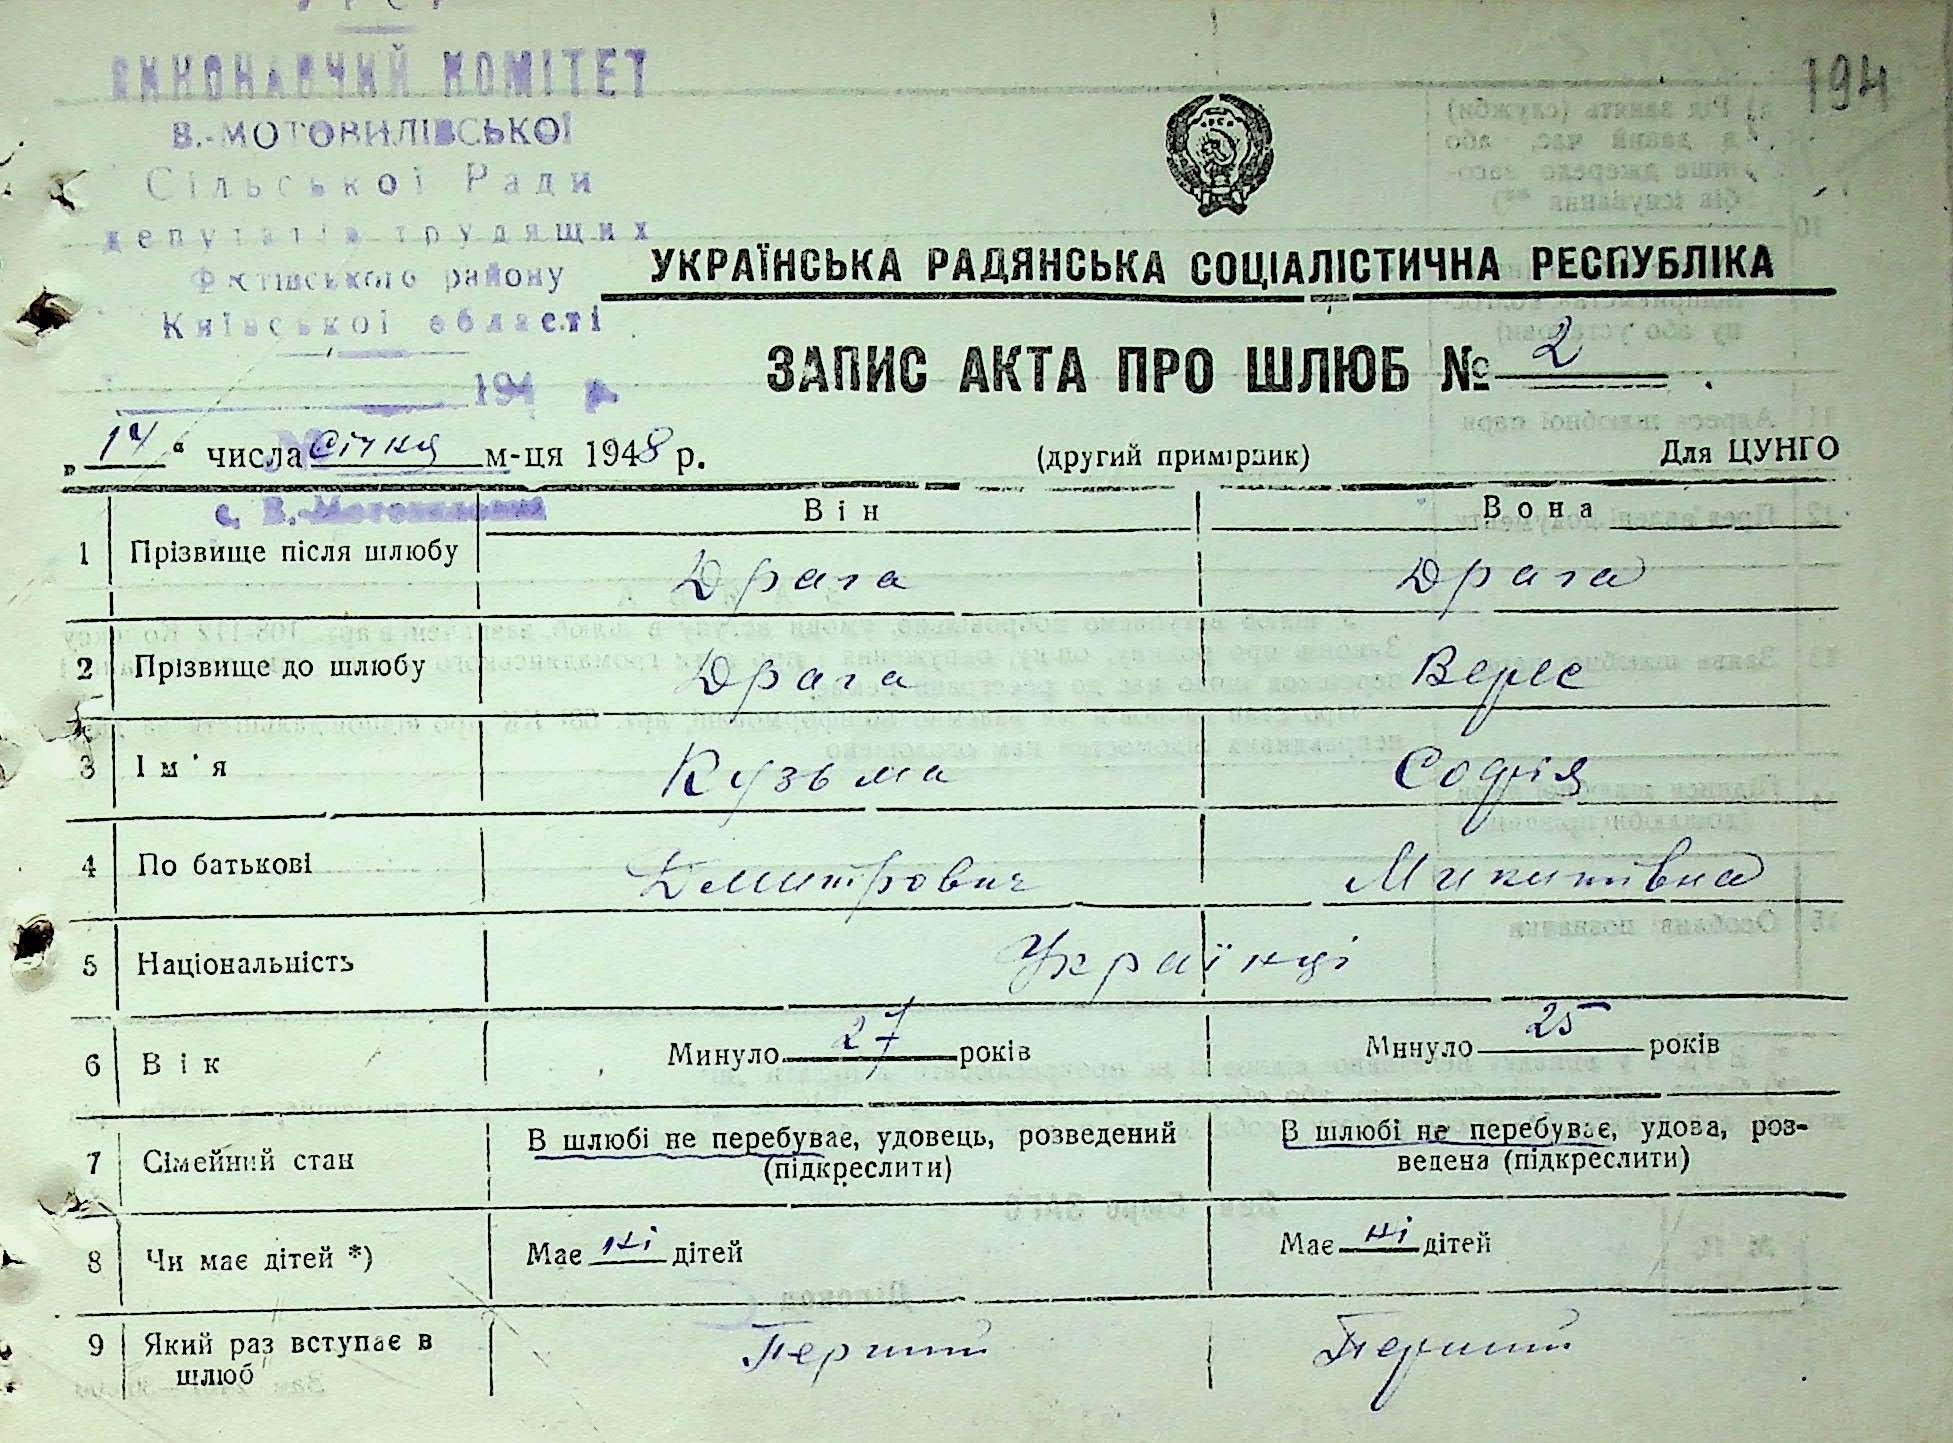 УРСР
ВИКОНАВЧИЙ КОМІТЕТ
В.-МОТОВИЛІВСЬКОЇ
Сільської Ради
депутатів трудящих
Фастівського району
Київської області
194 р.
№
с. В.-Мотовилівка
194
УКРАЇНСЬКА РАДЯНСЬКА СОЦІАЛІСТИЧНА РЕСПУБЛІКА
ЗАПИС АКТА ПРО ШЛЮБ № 2
„14“ числа січня м-ця 1948 р. (другий примірник) Для ЦУНГО
Він Вона
1 Прізвище після шлюбу Драга Драга
2 Прізвище до шлюбу Драга Верес
3 Ім'я Кузьма Софія
4 По батькові Дмитрович Микитівна
5 Національність Українці
6 Вік Минуло 27 років Минуло 25 років
7 Сімейний стан В шлюбі не перебуває, удовець, розведений (підкреслити) В шлюбі не перебуває, удова, роз-
ведена (підкреслити)
8 Чи має дітей *) Має ні дітей Має ні дітей
9 Який раз вступає в шлюб Перший Перший